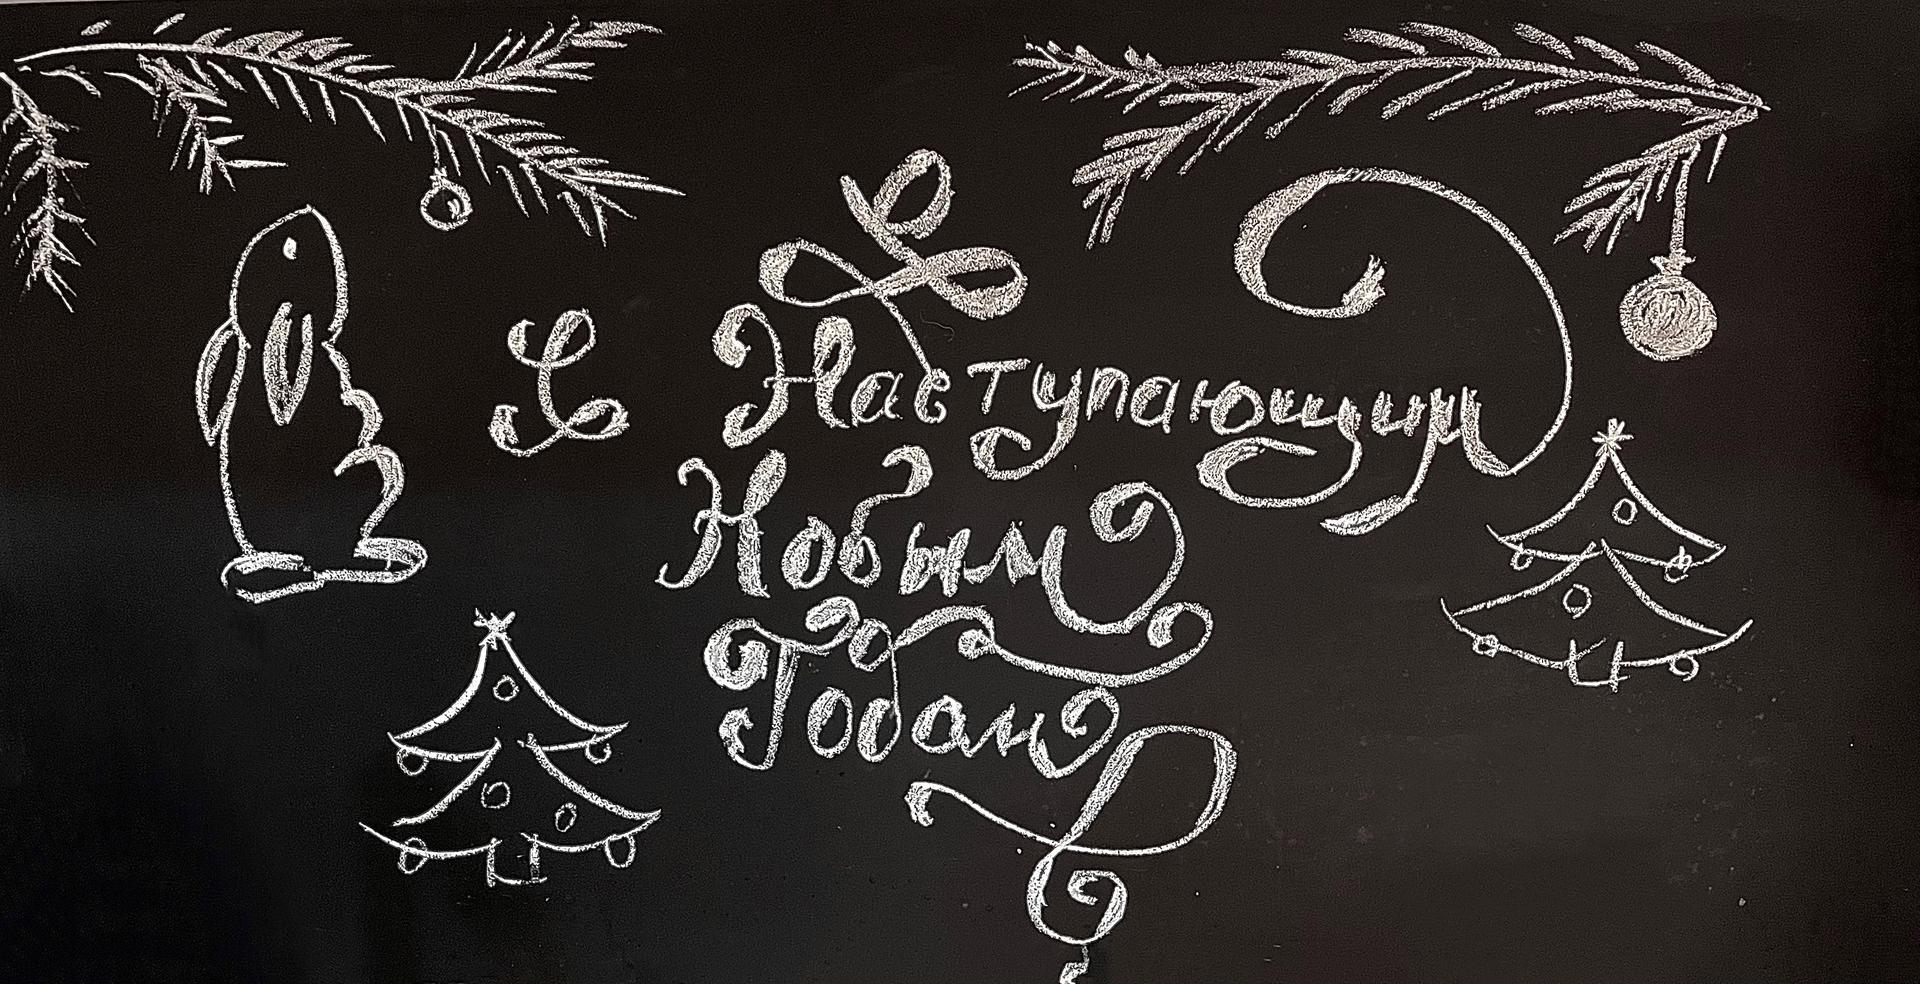 С Наступающим
Новым
Годом